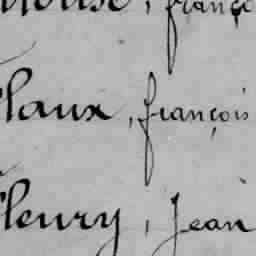 , franço
laux, françois
leury, Jean